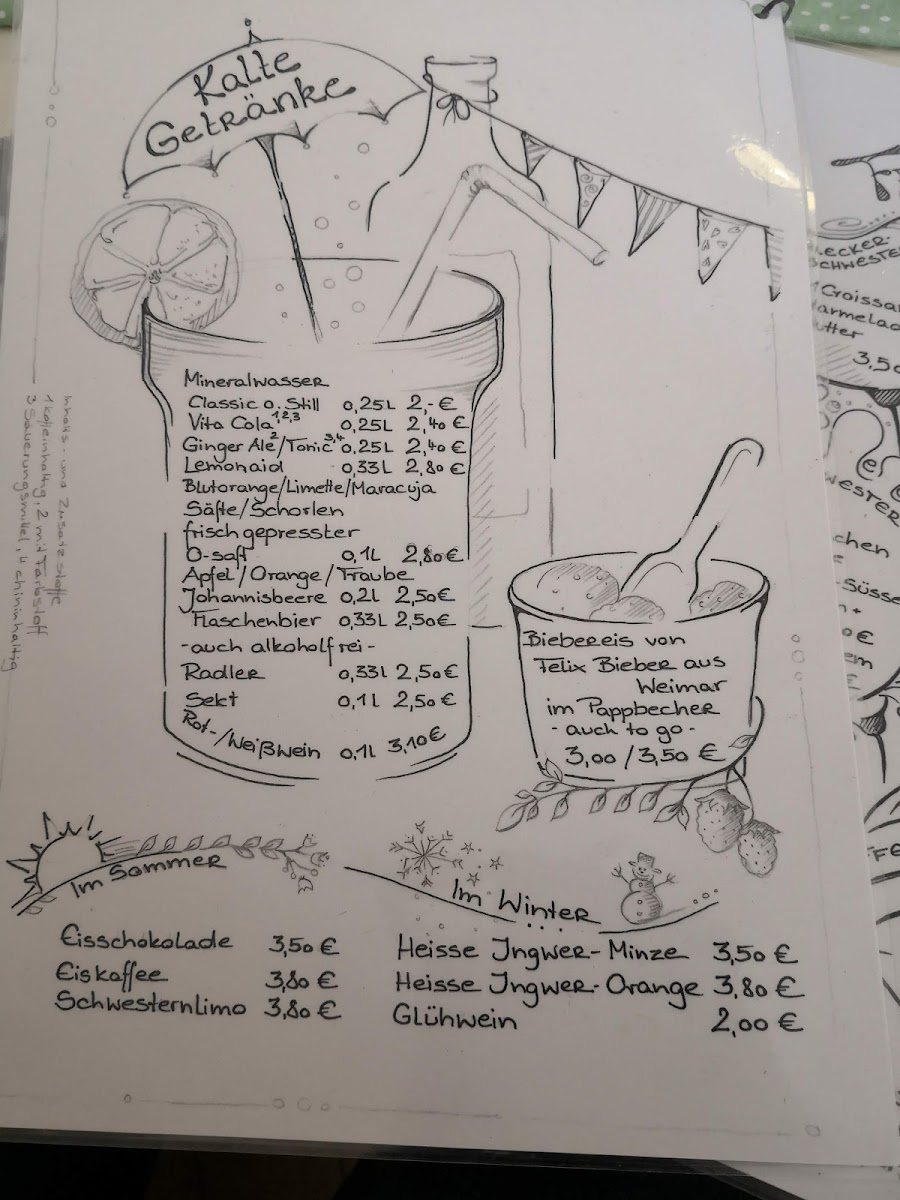 Kalte
Getränke
Mineralwasser
Classic o. Still 0,25L 2,- €
Vita Cola 1,2,3 0,25L 2,40 €
Ginger Ale 2/Tonic 3,4 0,25L 2,40 €
Lemonaid 0,33L 2,80 €
Blutorange/Limette/Maracuja
Säfte/Schorlen
frisch gepresster
O-saft 0,1L 2,80 €
Apfel/Orange/Traube
Johannisbeere 0,2L 2,50 €
Flaschenbier 0,33L 2,50 €
-auch alkoholfrei-
Radler 0,33L 2,50 €
Sekt 0,1L 2,50 €
Rot-/Weißwein 0,1L 3,10 €
Inhalts- und Zusatzstoffe
1 koffeinhaltig, 2 mit Farbstoff
3 Säuerungsmittel, 4 chininhaltig
Biebereis von
Felix Bieber aus
Weimar
im Pappbecher
- auch to go -
3,00 / 3,50 €
Im Sommer
Eisschokolade 3,50 €
Eiskaffee 3,80 €
Schwesternlimo 3,80 €
Im Winter
Heisse Ingwer-Minze 3,50 €
Heisse Ingwer-Orange 3,80 €
Glühwein 2,00 €
LECKER-
SCHWESTE
Croissa
armelad
utter
3,50
WESTER
chen
Süsse